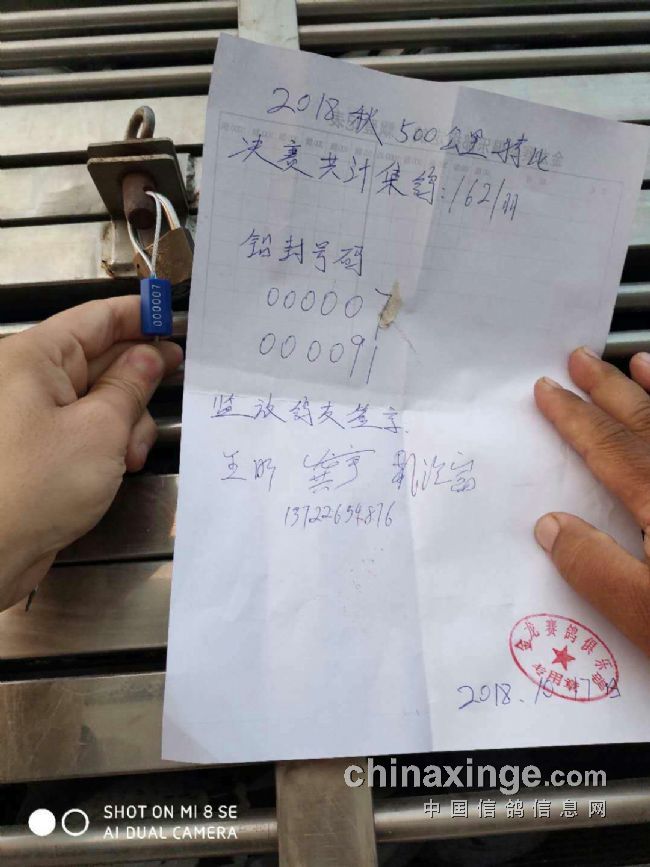 2018秋500公里特比
决赛共计集鸽:1621羽
铅封号码
000007
000091
监放鸽友签字.
王昕 龚宁
13722654876
金龙赛鸽俱乐部
专用章
2018.10.17日
000007
SHOT ON MI 8 SE
AI DUAL CAMERA
chinaxinge.com
中国信鸽信息网